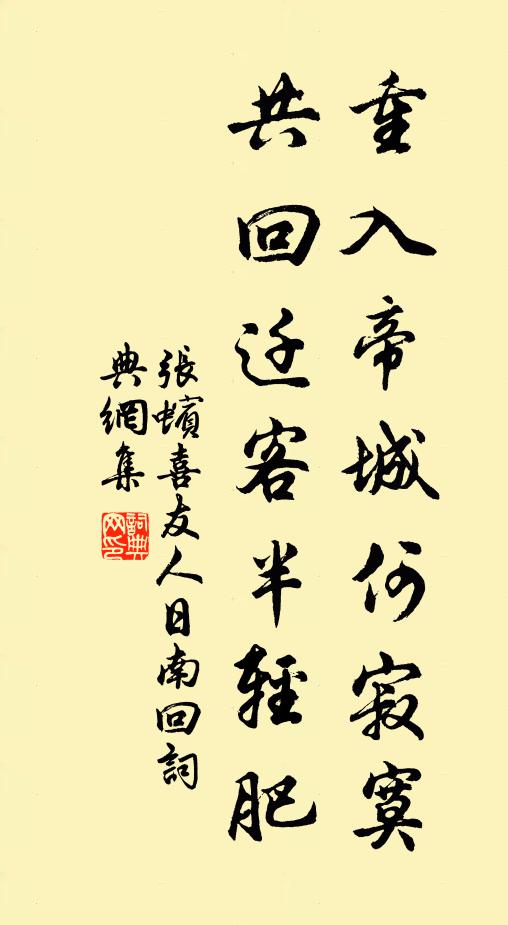 重入帝城何寂寞
共回迁客半輕肥
張蠙喜友人日南回詞
典網集
詞典
网印